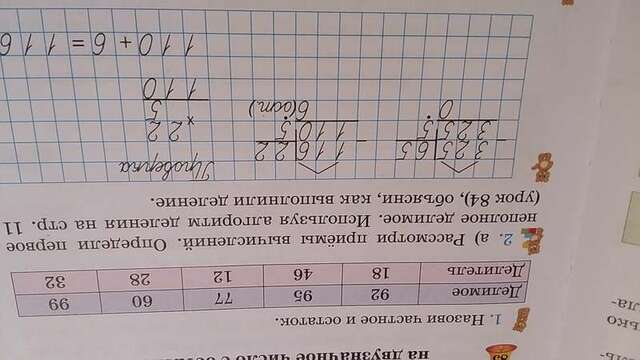 на двузначное число с оста
1. Назови частное и остаток.
Делимое 92 95 77 60 99
Делитель 18 46 12 28 32
2. а) Рассмотри приёмы вычислений. Определи первое
неполное делимое. Используя алгоритм деления на стр. 11
(урок 84), объясни, как выполнили деление.
Проверка
325 65
325 5
0
116 22
110 5
6(ост)
× 22
5
110
110 + 6 = 116
ько
ла-
ль-